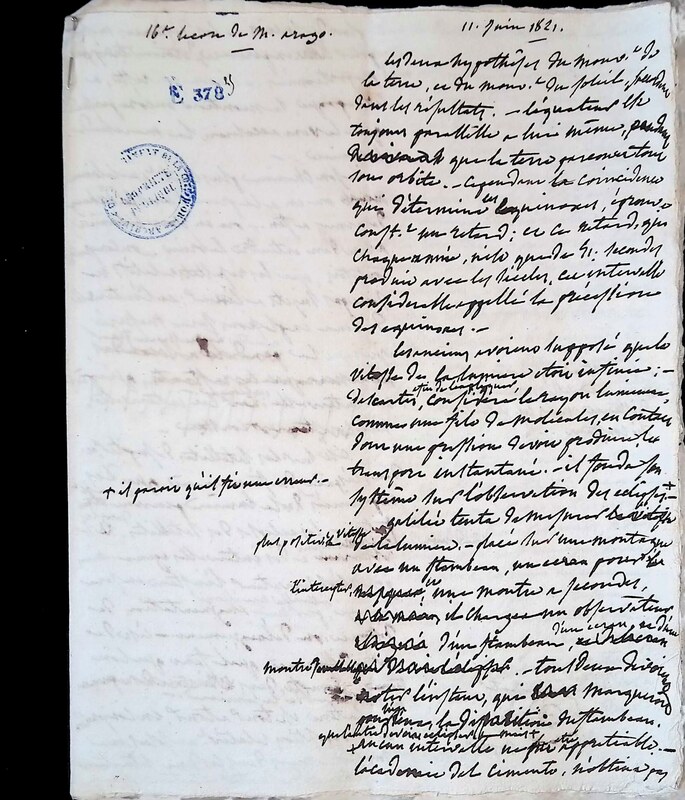 16e lecon de M. arago.
11. Juin 1821.
E 378 15
les deux hypothèses du mouv.t de
la terre, et du mouv.t du soleil,
dans les résultats. — l'équateur est
toujours parallèle a lui même,
que la terre parcourt tout
son orbite. — cependant la coincidence
que détermine les equinoxes, éprouve
const.t un retard; et ce retard, qui
chaque année, n'est que de 51. secondes
produit avec les siècles, cet intervalle
considérable appellé la précession
des equinoxes. —
les anciens avoient supposé que la
vitesse de la lumiere etoit infinie; —
descartes, considéré le rayon lumineux,
comme une file de molécules, en contact
dont une pression devoit produire le
transport instantané. — il fonda son
système sur l'observation des eclipses +
+ il paroit qu'il fit une erreur. —
galilée tenta de mesurer
plus positivt la vitesse
de la lumiere. — placé sur une montagne
avec un flambeau, un ecran pour
l'intercepter, et une montre a secondes,
il chargea un observateur
d'un flambeau, d'un ecran, et d'une
montre
— tous deux devoient
noter l'instant, que marqueroit
la disparition du flambeau,
que l'autre devoit eclipser
aucun intervalle ne fut appretiable. —
l'academie del cimento, n'obtint pas